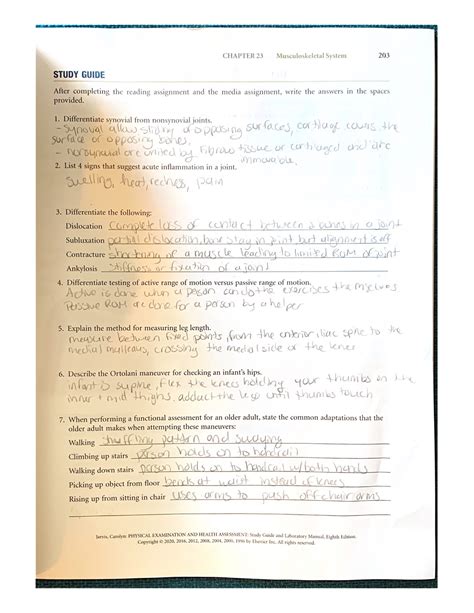 CHAPTER 23 Musculoskeletal System 203
STUDY GUIDE
After completing the reading assignment and the media assignment, write the answers in the spaces
provided.
1. Differentiate synovial from nonsynovial joints.
- Synovial allow sliding of opposing surfaces, cartilage covers the
surface of opposing bones.
- Nonsynovial are united by fibrous tissue or cartilage and are
immovable.
2. List 4 signs that suggest acute inflammation in a joint.
swelling, heat, redness, pain
3. Differentiate the following:
Dislocation complete loss of contact between 2 bones in a joint
Subluxation partial dislocation, bone stay in joint, but alignment is off
Contracture shortening of a muscle leading to limited ROM of joint
Ankylosis stiffness or fixation of a joint
4. Differentiate testing of active range of motion versus passive range of motion.
Active is done when a person can do the exercises themselves
Passive ROM are done for a person by a helper
5. Explain the method for measuring leg length.
measure between fixed points, from the anterior iliac spine to the
medial malleolus, crossing the medial side of the knees
6. Describe the Ortolani maneuver for checking an infant's hips.
infant is supine, flex the knees holding your thumbs on the
inner mid thighs, adduct the legs until thumbs touch
7. When performing a functional assessment for an older adult, state the common adaptations that the
older adult makes when attempting these maneuvers:
Walking shuffling pattern and swaying
Climbing up stairs person holds on to handrail
Walking down stairs person holds on to handrail w/ both hands
Picking up object from floor bends at waist instead of knees
Rising up from sitting in chair uses arms to push off chair arms
Jarvis, Carolyn: PHYSICAL EXAMINATION AND HEALTH ASSESSMENT: Study Guide and Laboratory Manual, Eighth Edition.
Copyright © 2020, 2016, 2012, 2008, 2004, 2000, 1996 by Elsevier Inc. All rights reserved.